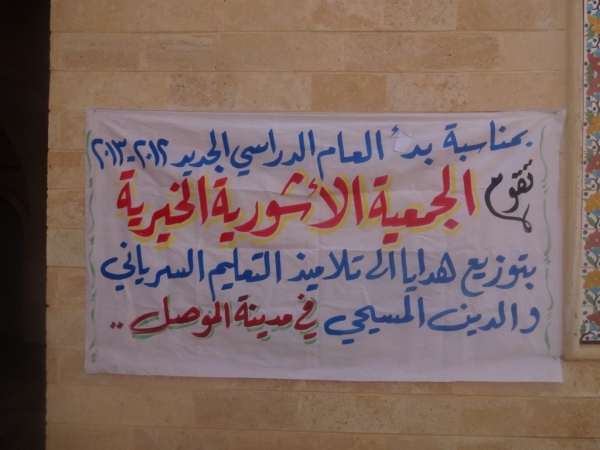 بمناسبة بدأ العام الدراسي الجديد ٢٠١٢-٢٠١٣
تقوم الجمعية الأشورية الخيرية
بتوزيع هدايا الى تلاميذ التعليم السرياني
والدين المسيحي في مدينة الموصل ..